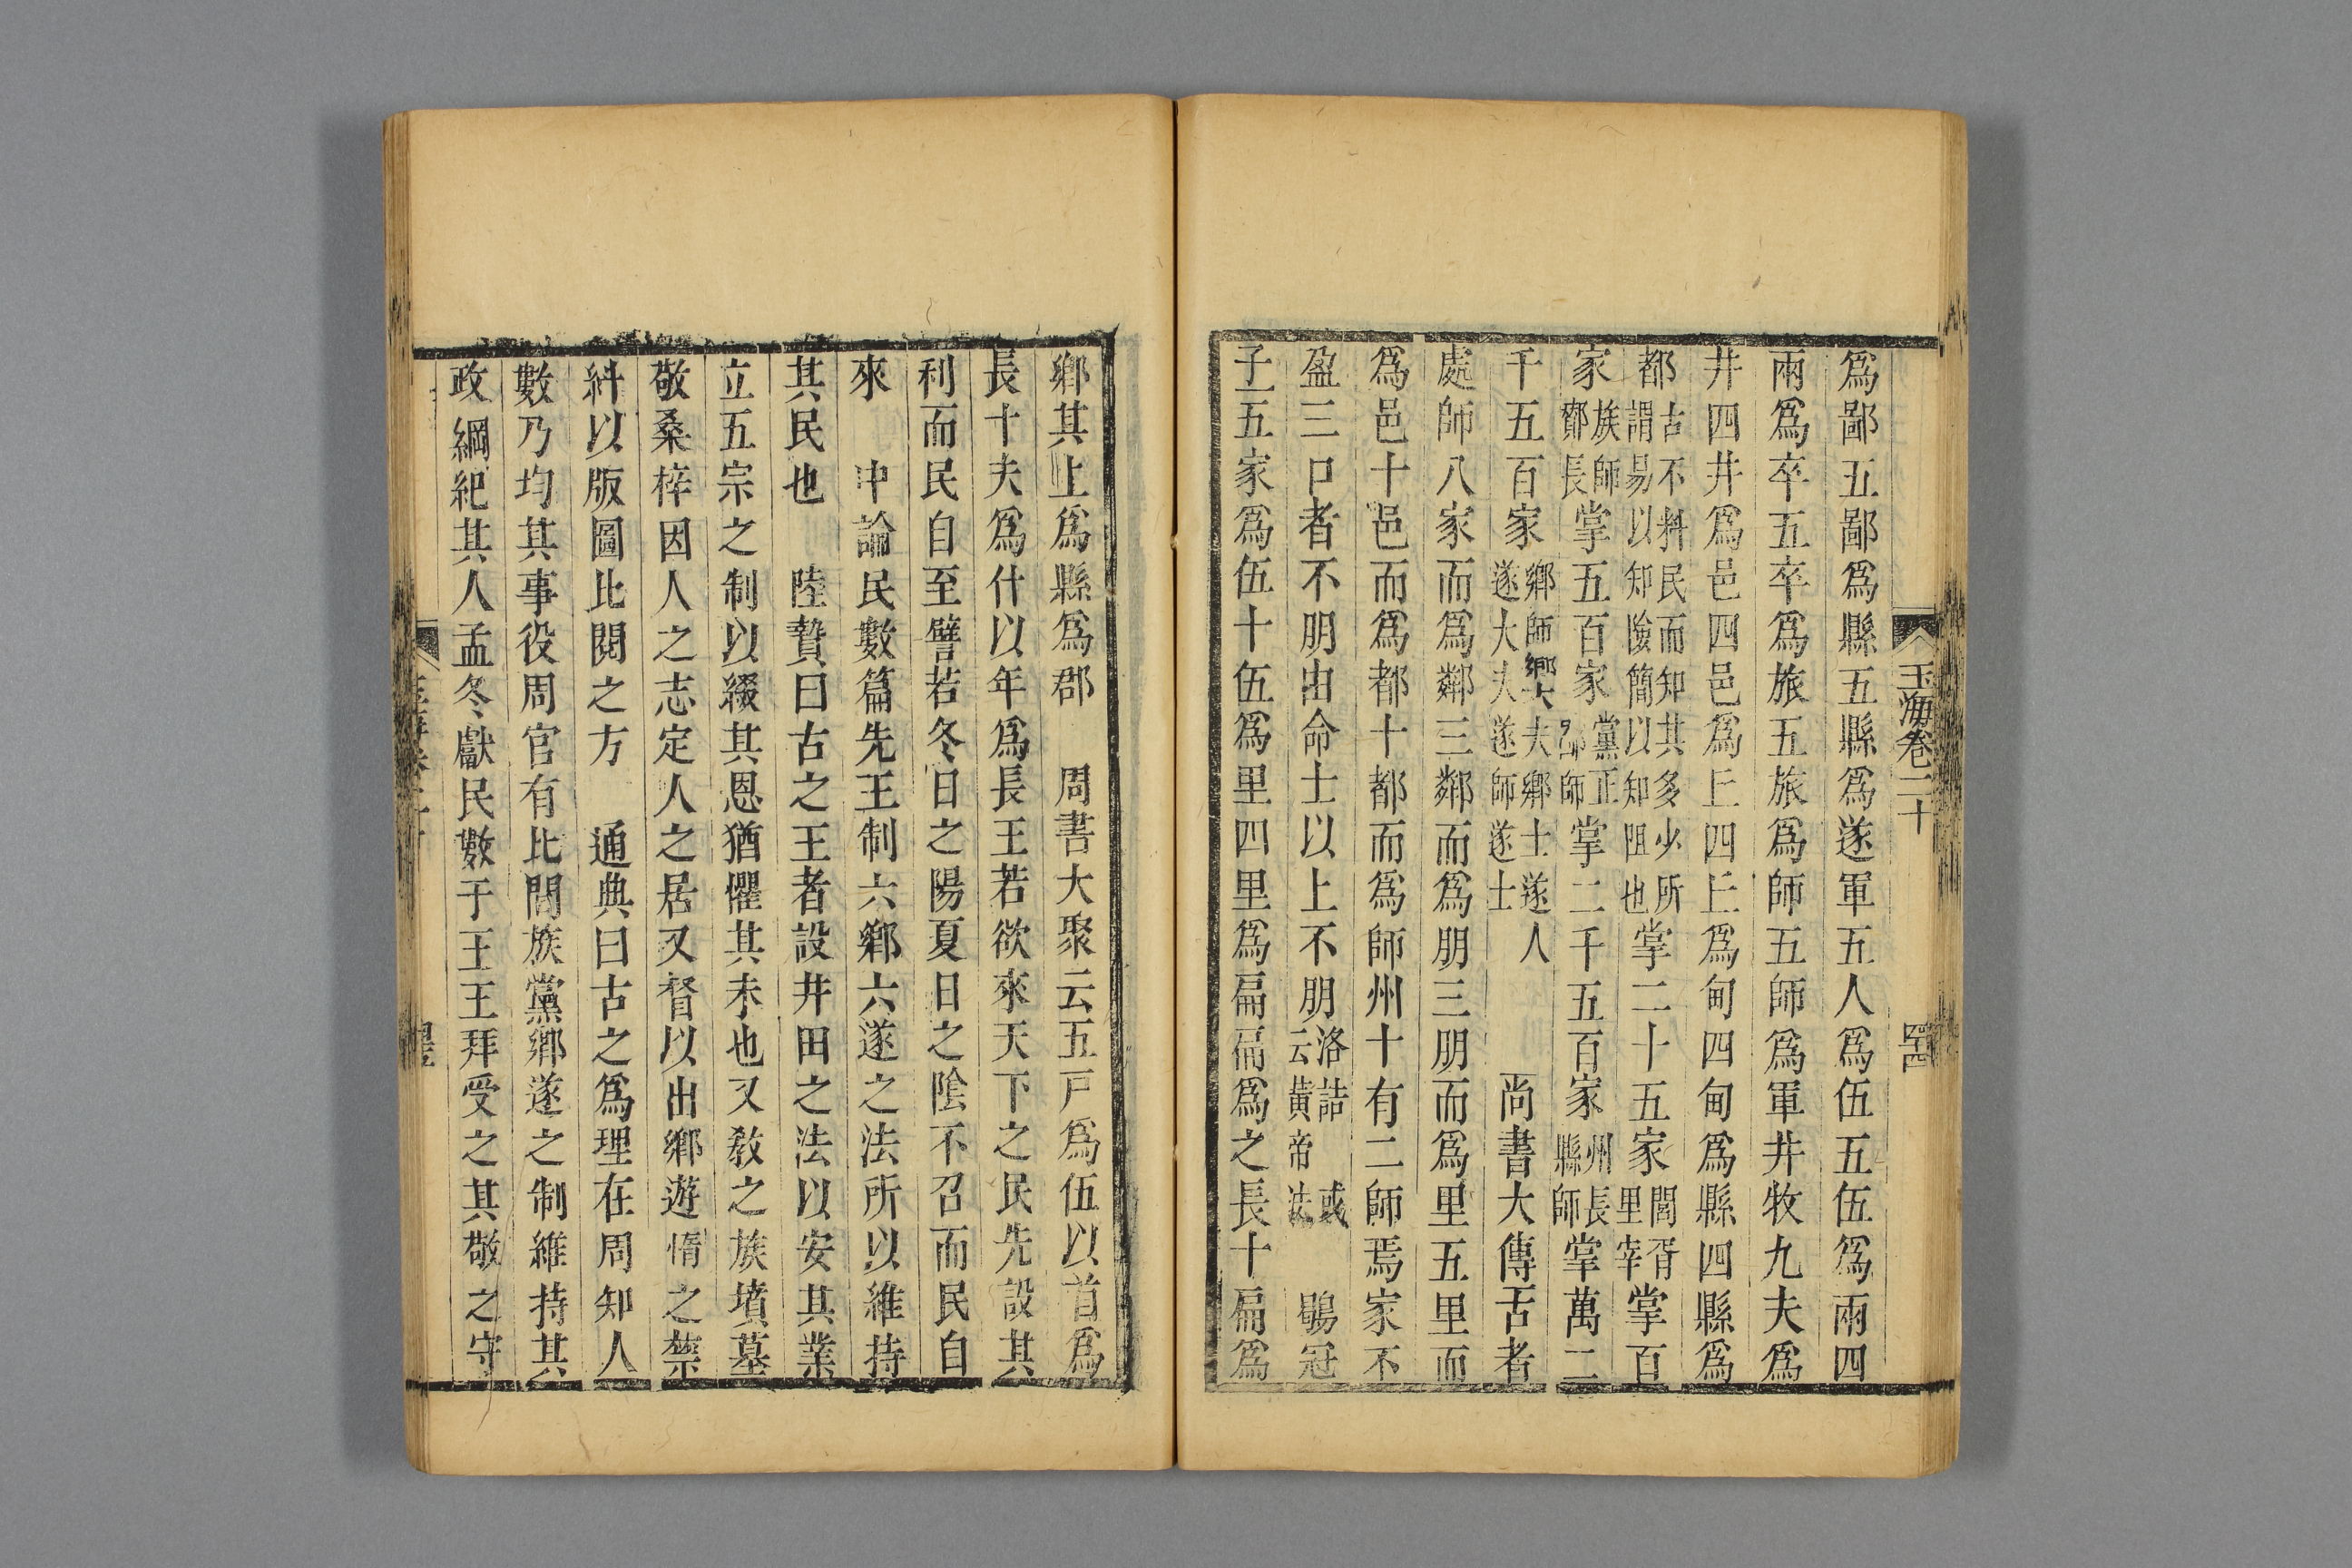 玉海卷二十
爲鄙五鄙爲縣五縣爲遂軍五人爲伍五伍爲兩四
兩爲卒五卒爲旅五旅爲師五師爲軍井牧九夫爲
井四井爲邑四邑爲丘四丘爲甸四甸爲縣四縣爲
都古不料民而知其多少所謂易以知險簡以知阻也掌二十五家閭胥里宰掌百
家族師酇長掌五百家黨正鄙師掌二千五百家州長縣師掌萬二
千五百家鄉師鄉大夫鄉士遂人遂大夫遂師遂士 尚書大傳古者
處師八家而爲鄰三鄰而爲朋三朋而爲里五里而
爲邑十邑而爲都十都而爲師州十有二師焉家不
盈三口者不朋由命士以上不朋洛誥或云黃帝法 鶡冠
子五家爲伍十伍爲里四里爲扁扁爲之長十扁爲
鄉其上爲縣爲郡 周書大聚云五戶爲伍以首爲
長十夫爲什以年爲長王若欲來天下之民先設其
利而民自至譬若冬日之陽夏日之陰不召而民自
來 中論民數篇先王制六鄉六遂之法所以維持
其民也 陸贄曰古之王者設井田之法以安其業
立五宗之制以綴其恩猶懼其未也又敎之族墳墓
敬桑梓因人之志定人之居又督以出鄉遊惰之禁
糾以版圖比閱之方 通典曰古之爲理在周知人
數乃均其事役周官有比閭族黨鄉遂之制維持其
政綱紀其人孟冬獻民數于王王拜受之其敬之守